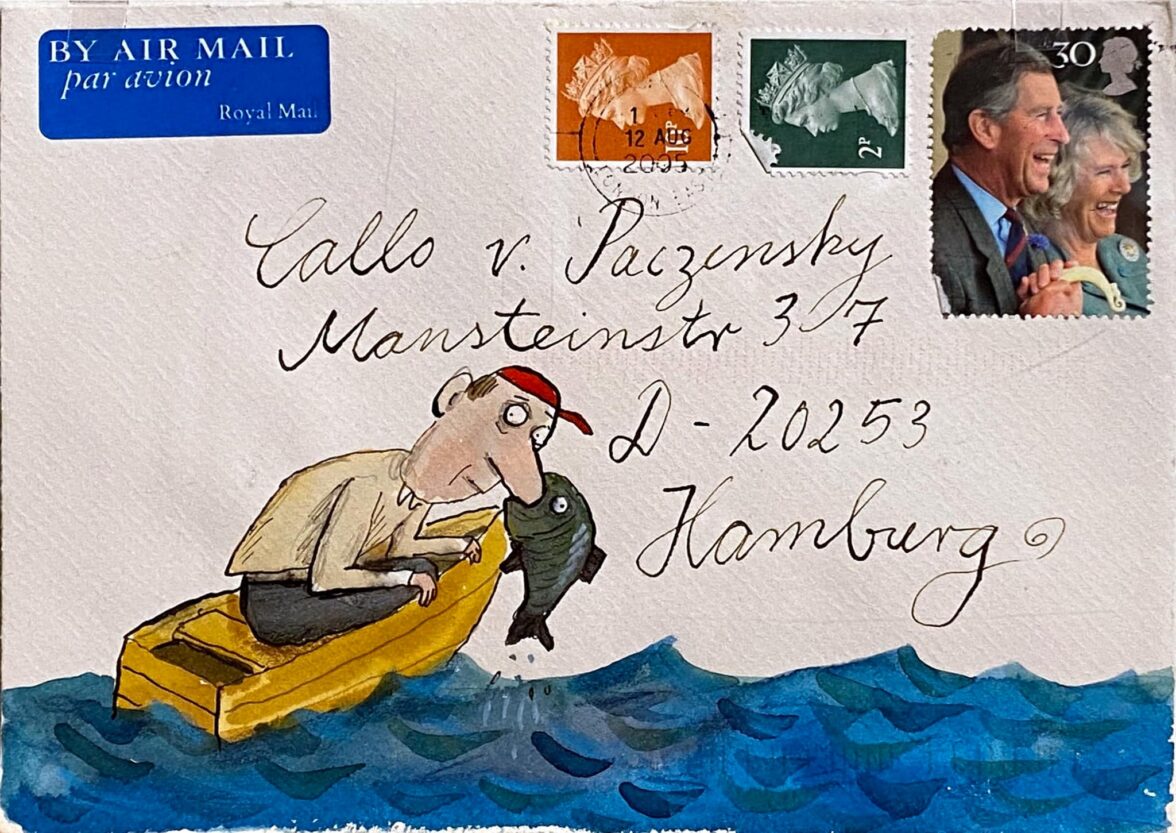 BY AIR MAIL
par avion
Royal Mail
12 AUG
2005
2P
30
Callo v. Paczensky
Mansteinstr 37
D - 20253
Hamburg